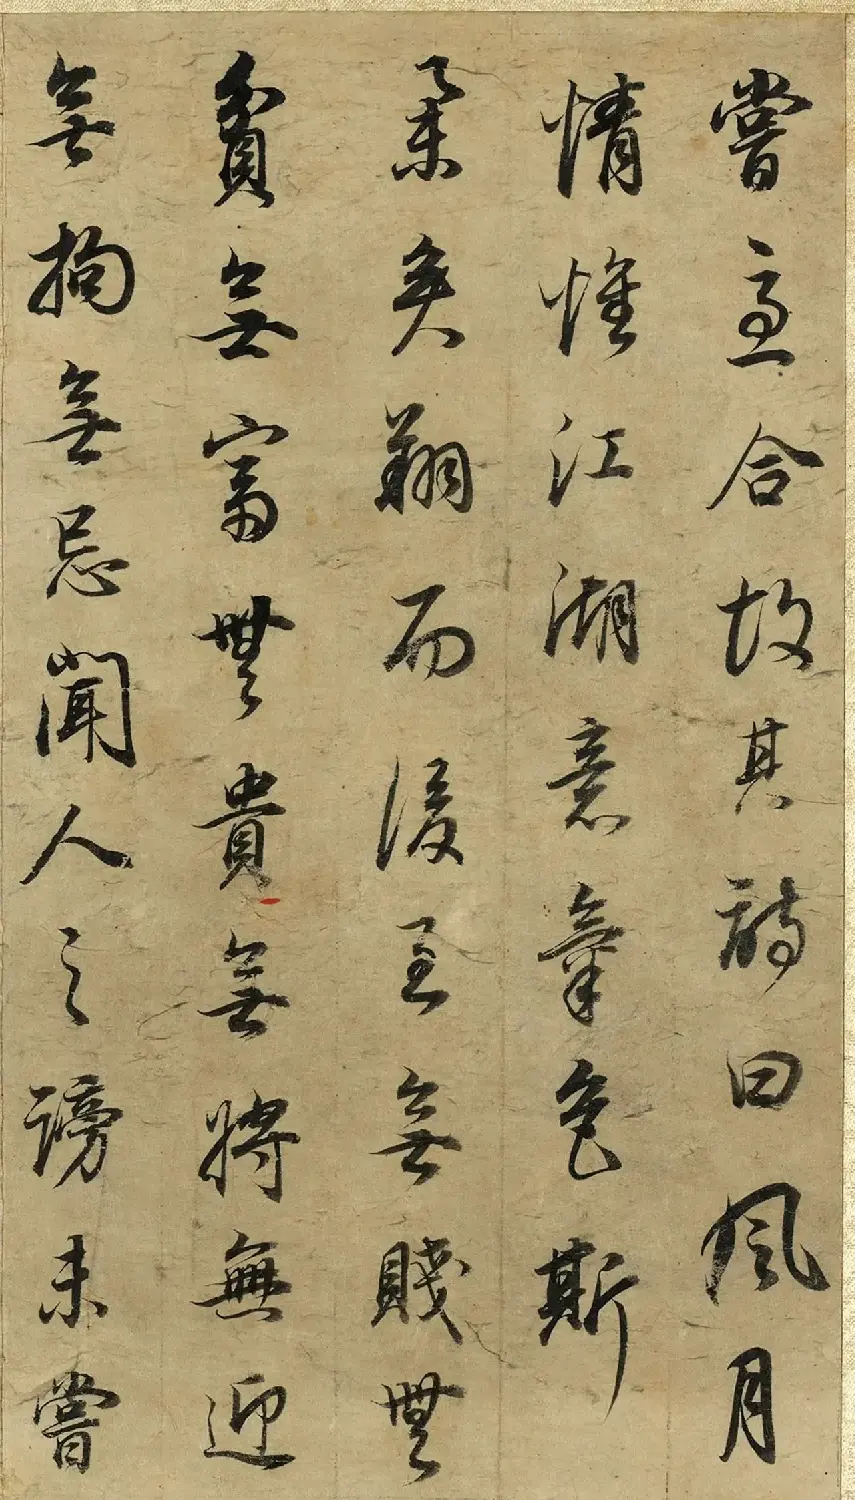 嘗亟合故其詩曰風月
情惟江湖意氣色斯
舉矣翔而後至無賤無
貧無富無貴無將無迎
無拘無忌聞人之謗未嘗